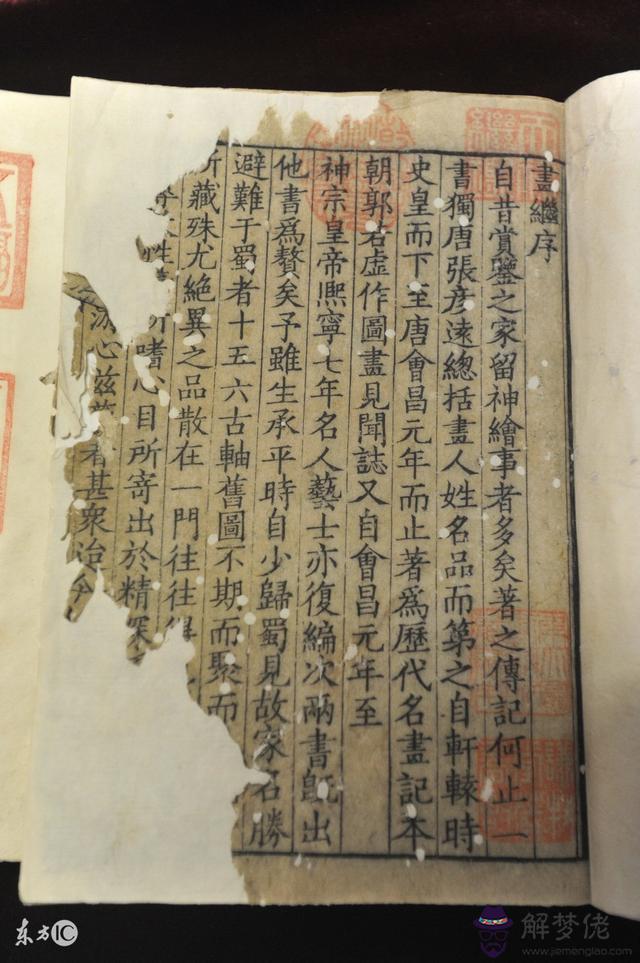 畫繼序
自昔賞鑒之家留神繪事者多矣著之傳記何止一
書獨唐張彥遠總括畫人姓名品而第之自軒轅時
史皇而下至唐會昌元年而止著為歷代名畫記本
朝郭若虛作圖畫見聞誌又自會昌元年至
神宗皇帝熈寧七年名人藝士亦復編次兩書旣出
他書為贅矣予雖生承平時自少歸蜀見故家名勝
避難于蜀者十五六古軸舊圖不期而聚而
所藏殊尤絕異之品散在一門往往得
性
所嗜心目所寄出於精深
游心茲藝者甚衆迨今
东方IC
解梦佬
www.jiemenglao.com